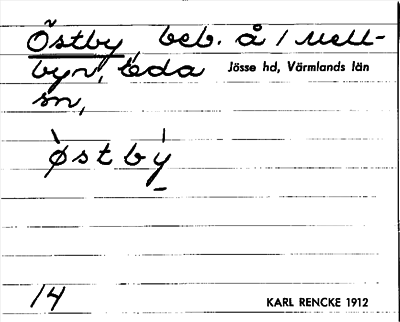 Östby, beb. å 1 Mell-
byn, Eda Jösse hd, Värmlands län
sn,
̀østbý̠
14 KARL RENCKE 1912